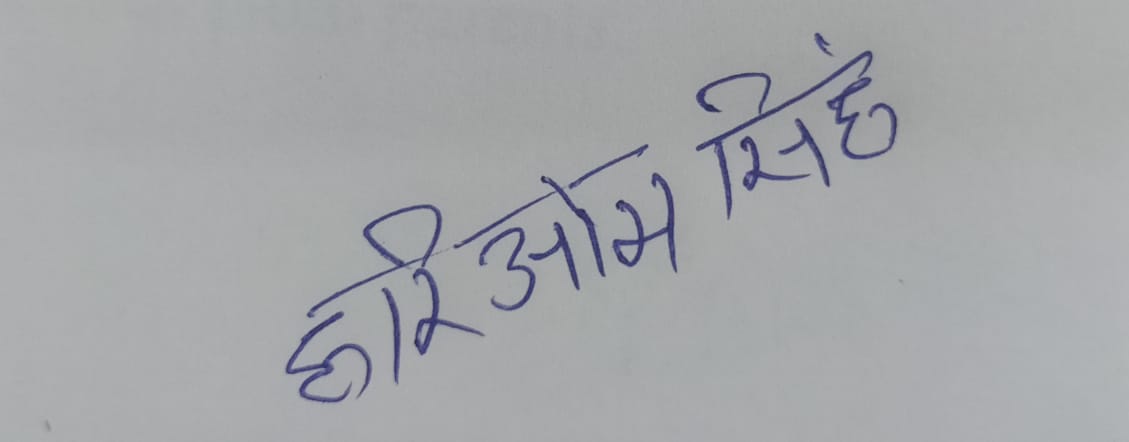 हरिओम सिंह